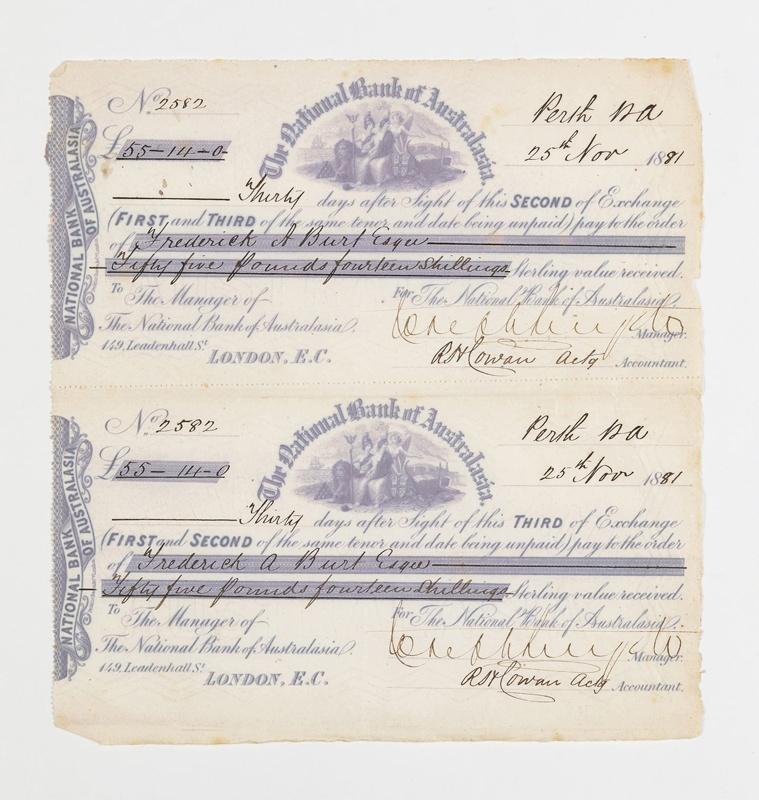 NATIONAL BANK
OF AUSTRALASIA
No. 2582
The National Bank of Australasia.
Perth WA
£ 55-14-0
25th Nov 1881
Thirty days after Sight of this SECOND of Exchange
(FIRST and THIRD of the same tenor and date being unpaid) pay to the order
of Frederick A Burt Esqre
Fifty five Pounds fourteen Shillings Sterling value received.
To The Manager of
For The National Bank of Australasia.
The National Bank of Australasia.
Manager.
149, Leadenhall St.
RH Cowan Actg Accountant.
LONDON, E.C.
NATIONAL BANK
OF AUSTRALASIA
No. 2582
The National Bank of Australasia.
Perth WA
£ 55-14-0
25th Nov 1881
Thirty days after Sight of this THIRD of Exchange
(FIRST and SECOND of the same tenor and date being unpaid) pay to the order
of Frederick A Burt Esqre
Fifty five Pounds fourteen Shillings Sterling value received.
To The Manager of
For The National Bank of Australasia.
The National Bank of Australasia.
Manager.
149, Leadenhall St.
RH Cowan Actg Accountant.
LONDON, E.C.